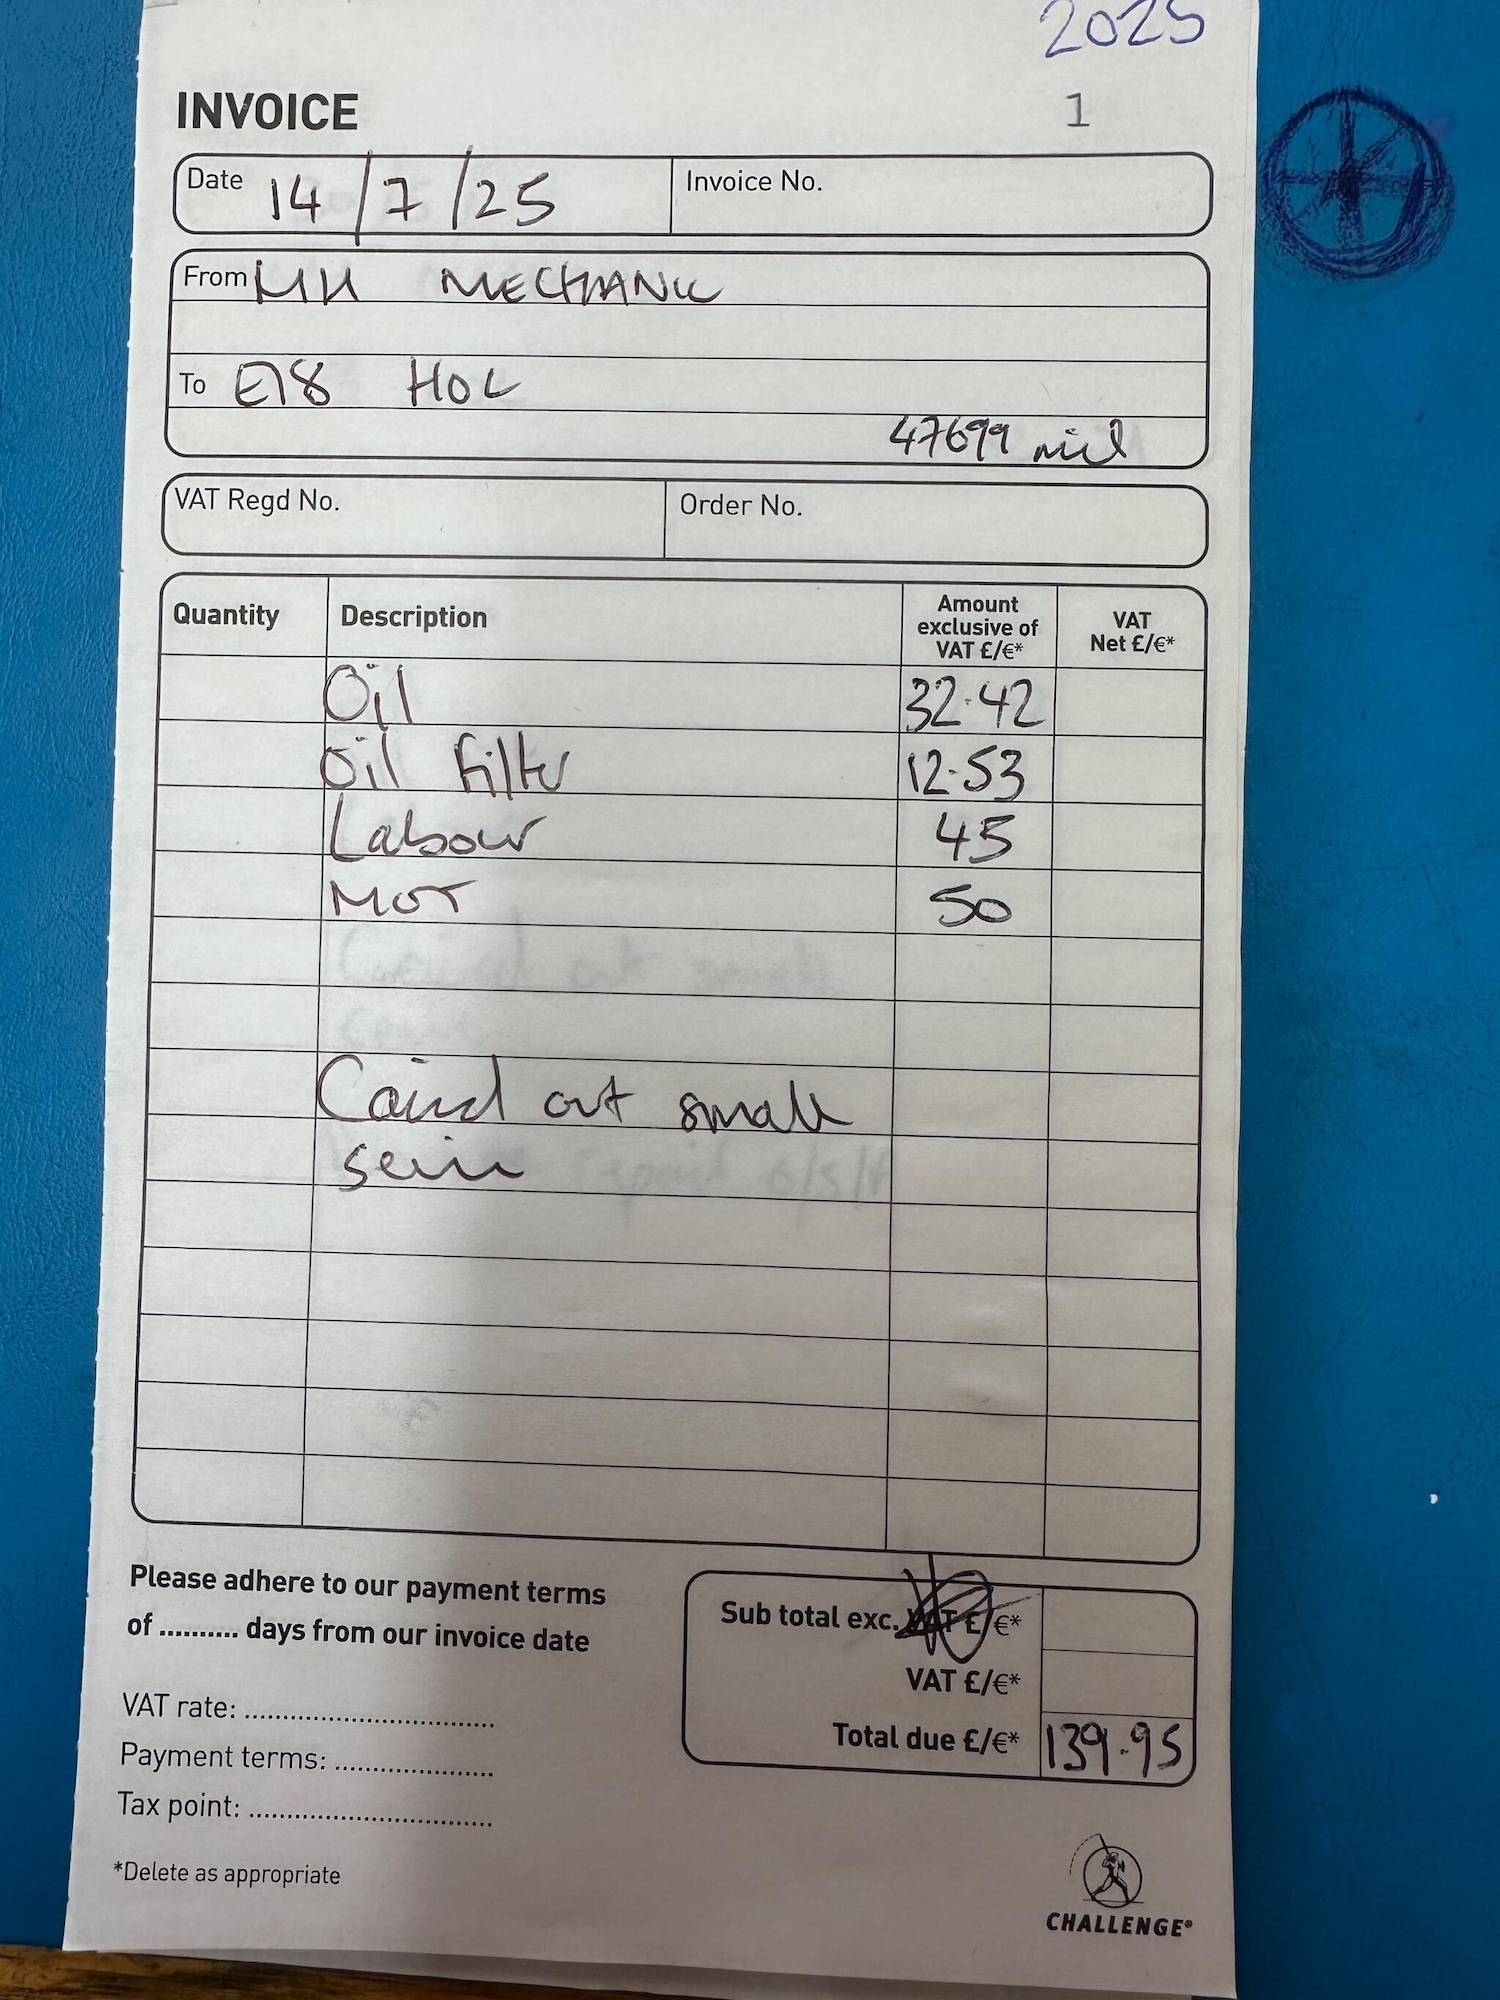 2025
INVOICE
1
Date 14/7/25
Invoice No.
From MH MECHANIC
To E18 HOL
47699 mil
VAT Regd No.
Order No.
Quantity Description Amount exclusive of VAT £/€* VAT Net £/€*
Oil 32.42
Oil Filter 12.53
Labour 45
MOT 50
out small
Please adhere to our payment terms
of .......... days from our invoice date
Sub total exc. VAT £/€*
VAT £/€*
Total due £/€* 139.95
VAT rate:
Payment terms:
Tax point:
*Delete as appropriate
CHALLENGE®